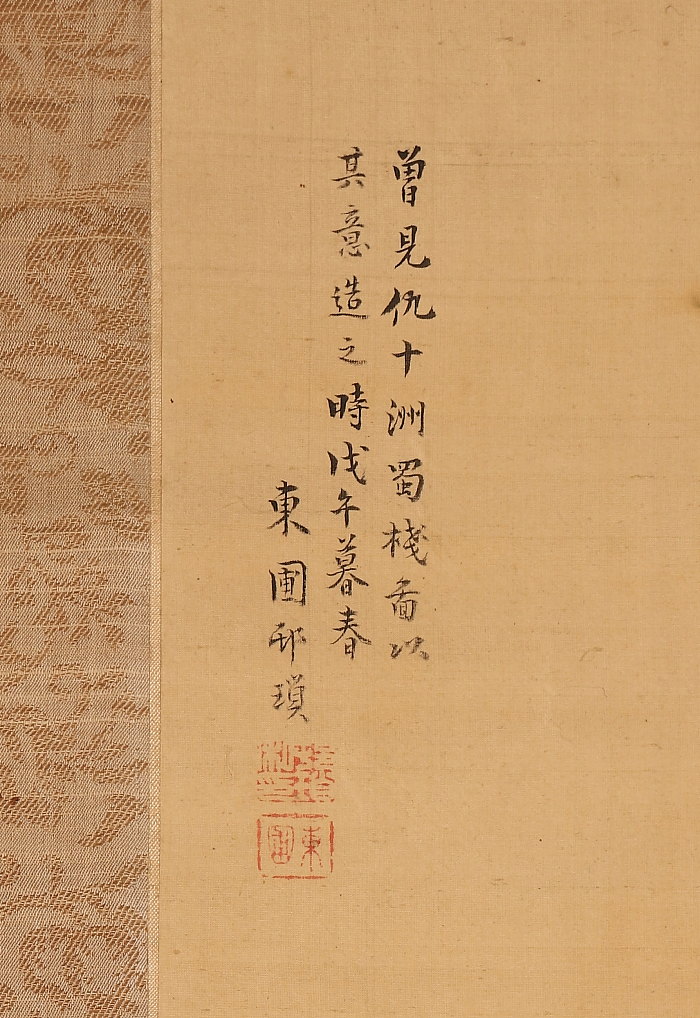 曾見仇十洲蜀棧畨以
其意造之時戊午暮春
東圃邨瑣
東圃